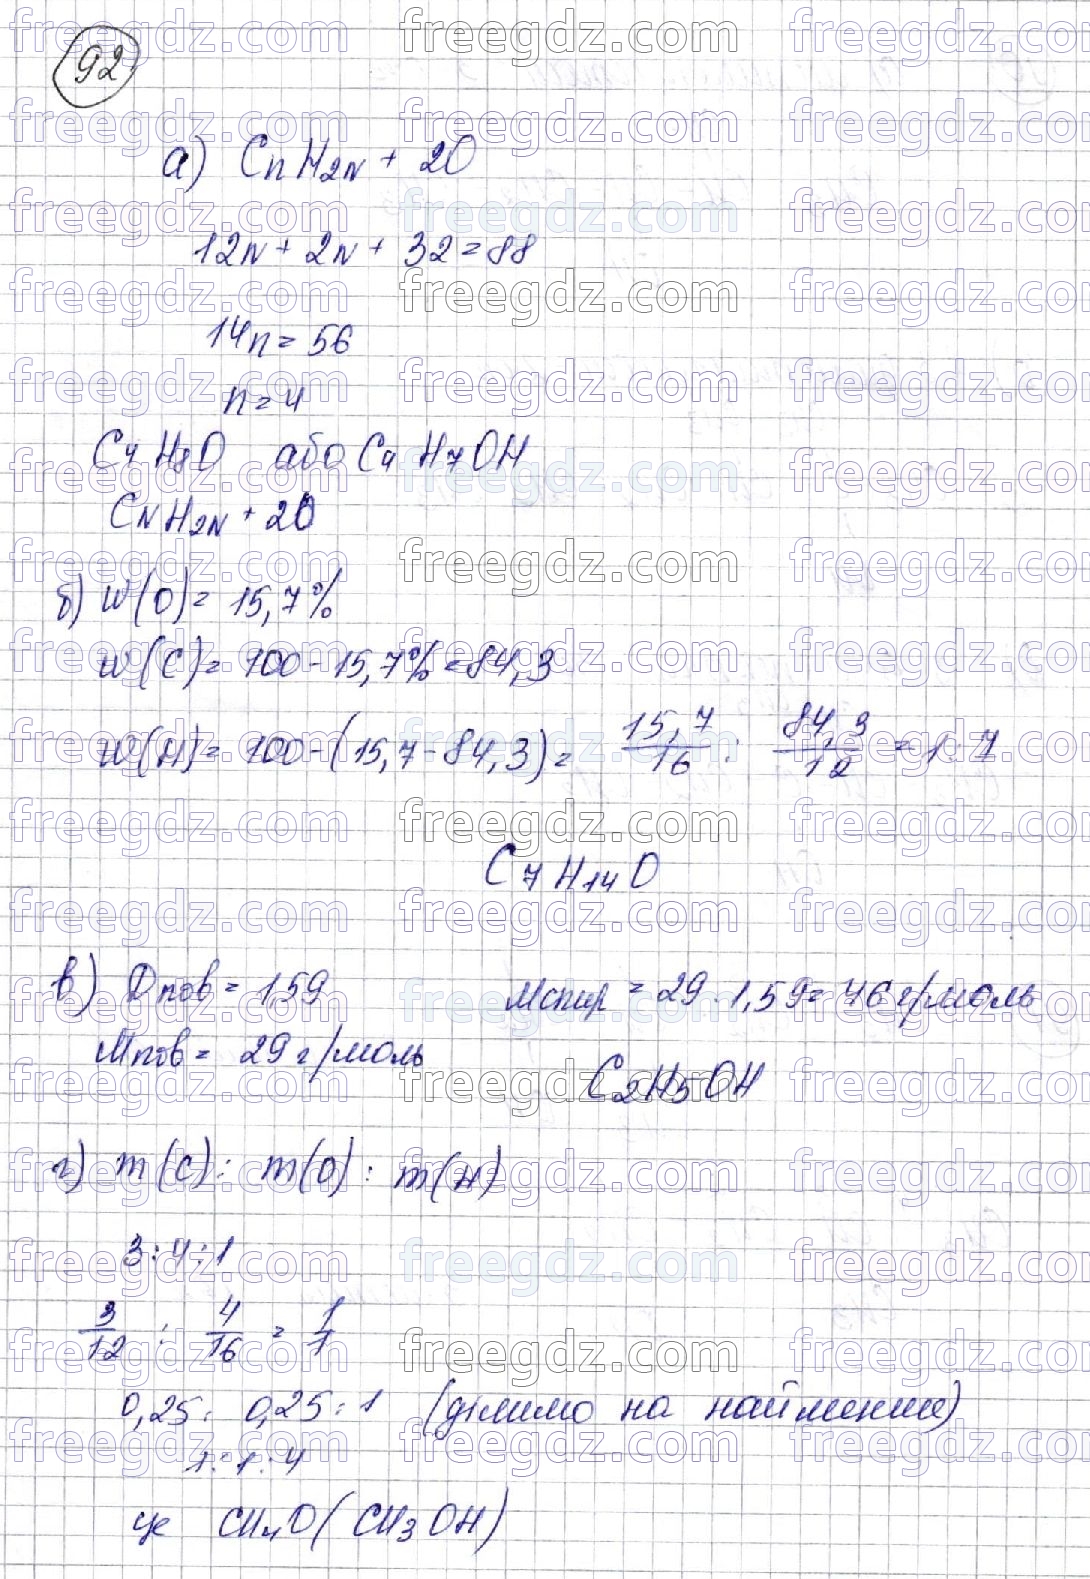 92
а) CnH2n + 2O
12n + 2n + 32 = 88
14n = 56
n = 4
C4H8O або C4H7OH
CnH2n + 2O
б) W(O) = 15,7%
W(C) = 100 - 15,7% = 84,3
W(H) = 100 - (15,7 - 84,3) = 15,7/16 : 84,3/12 = 1 : 7
C7H14O
в) Dпов = 1,59 Mспир = 29 · 1,59 = 46 г/моль
Mпов = 29 г/моль C2H5OH
г) m(C) : m(O) : m(H)
3 : 4 : 1
3/12 : 4/16 = 1/1
0,25 : 0,25 : 1 (ділимо на найменше)
1 : 1 : 4
це CH4O (CH3OH)
freegdz.com